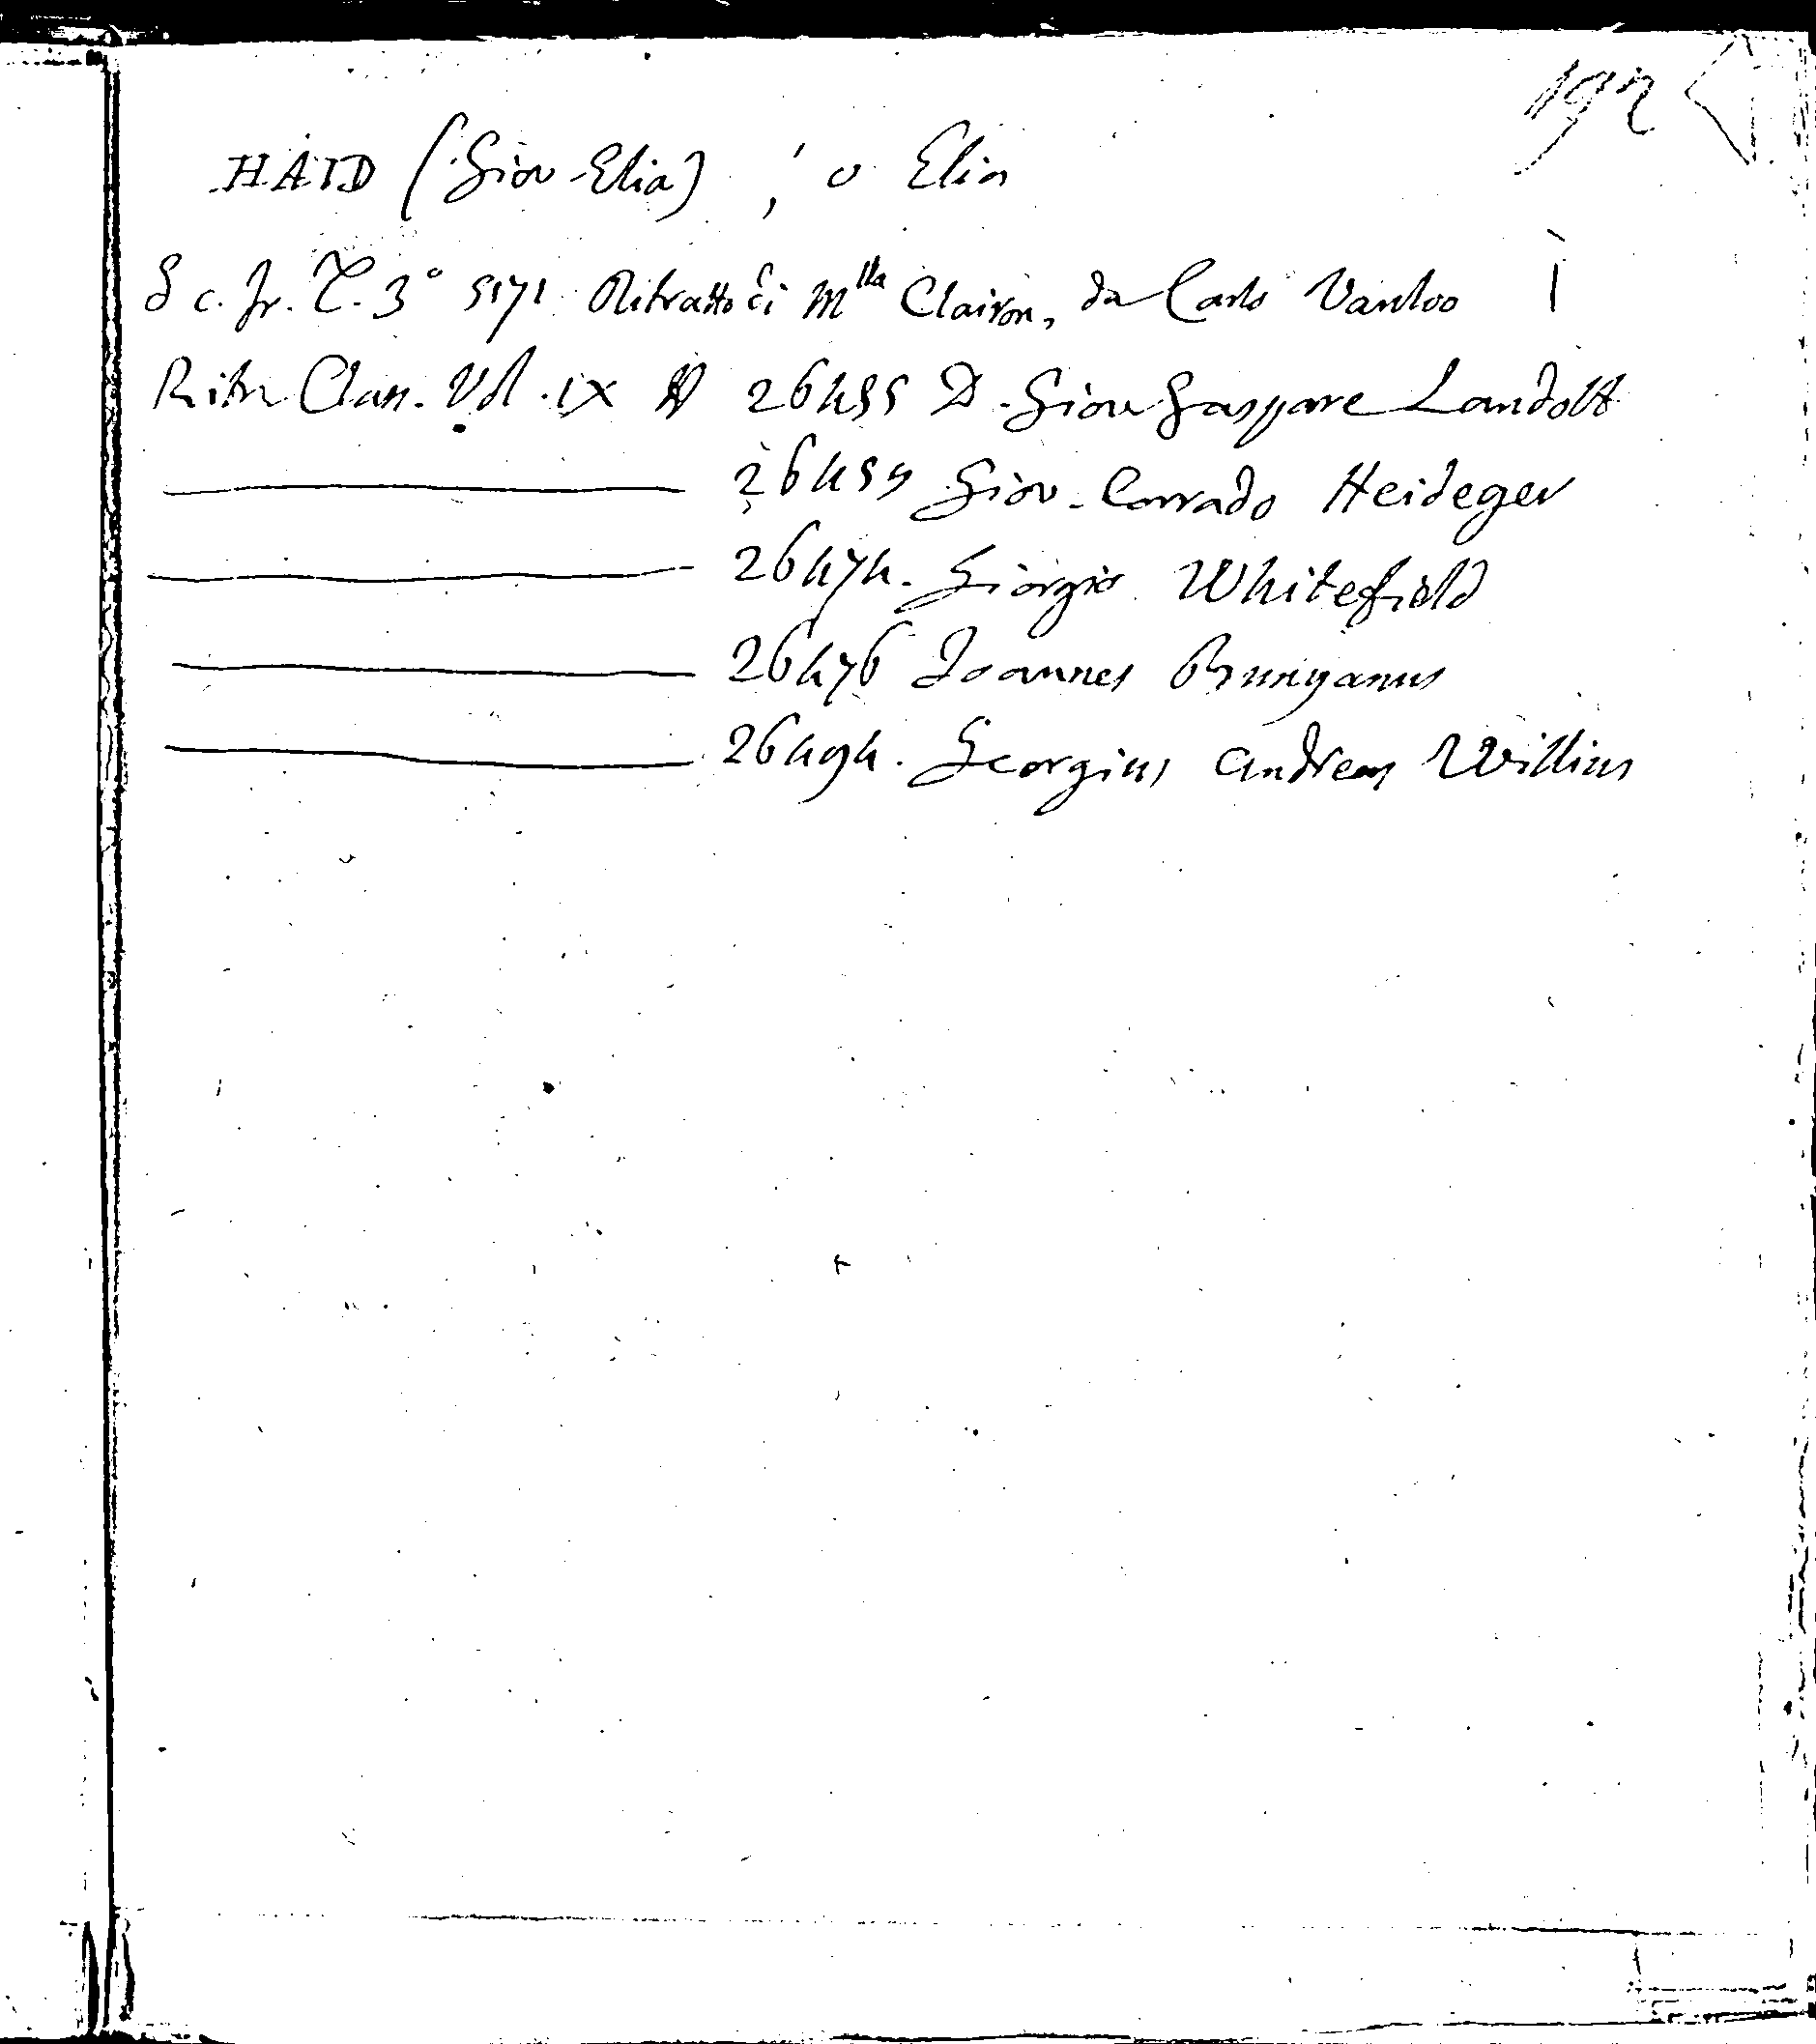 192
HAID (Giov Elia), o Elia
S c. fr. T. 3° 5171 Ritratto di M^lla Clairon, da Carlo Vanloo 1
Ritr Class. Vol. IX N 26455 D. Giov Gaspare Landolt
26459 Giov. Corrado Heideger
26474. Giorgio Whitefield
26476 Joannes Bunyanus
26494. Georgius Andreas Willius